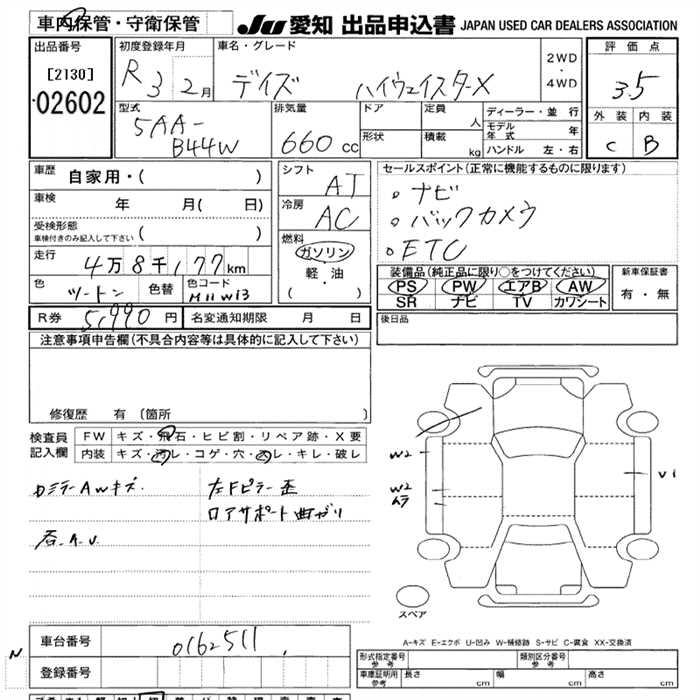 車内保管・守衛保管
JU 愛知 出品申込書 JAPAN USED CAR DEALERS ASSOCIATION
出品番号
[2130]
02602
初度登録年月
R 3 2月
車名・グレード
デイズ ハイウェイスターX
2WD
・
4WD
評価点
3.5
外装 内装
C B
型式
5AA-
B44W
排気量
660 cc
ドア
形状
定員
人
積載
kg
ディーラー・並行
モデル年式 年
ハンドル 左・右
車歴 自家用・( )
車検 年 月( 日)
受検形態
車検付きのみ記入して下さい ( )
走行 4万8千177km
色 ツートン 色替 色コード M11W13
シフト AT
冷房 AC
燃料
ガソリン
・
軽・油
( )
セールスポイント(正常に機能するものに限ります)
。ナビ
。バックカメラ
。ETC
装備品(純正品に限り○をつけてください)
PS PW エアB AW
SR ナビ TV カワシート
新車保証書
有・無
R券 5,990円 名変通知期限 月 日
後日品
注意事項申告欄(不具合内容等は具体的に記入して下さい)
修復歴 有 〔箇所 〕
検査員
記入欄
FW キズ・飛石・ヒビ割・リペア跡・X要
内装 キズ・汚レ・コゲ・穴・スレ・キレ・破レ
カミラーAWキズ
左Fピラー歪
ロアサポート曲ガリ
W2
W2
ムラ
V1
スペア
A-キズ E-エクボ U-凹み W-補修跡 S-サビ C-腐食 XX-交換済
N
車台番号 0162511
登録番号
形式指定番号
参考
類別区分番号
参考
車庫証明用
参考
長さ cm 幅 cm 高さ cm